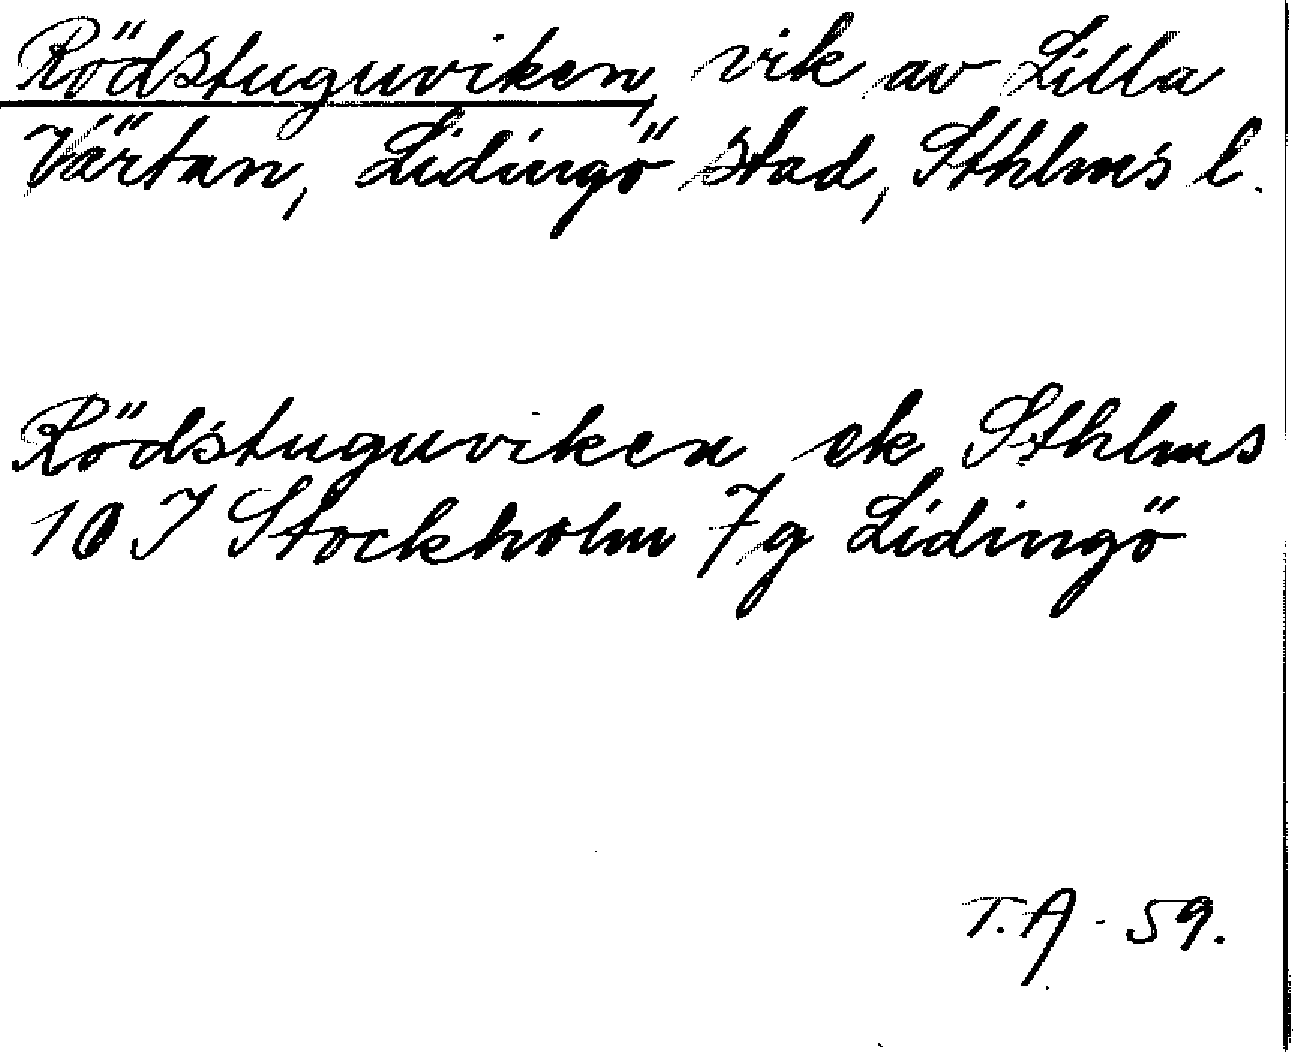 Rödstuguviken, vik av Lilla
Värtan, Lidingö stad, Sthlms l.
Rödstuguviken ek Sthlms
10 I Stockholm 7g Lidingö
T.A - 59.